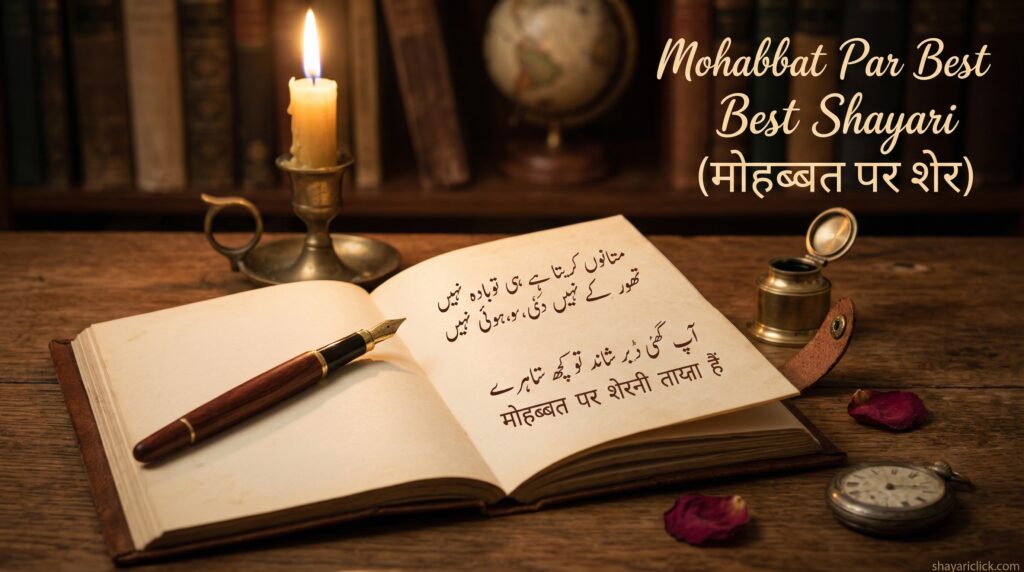 Mohabbat Par Best
Best Shayari
(मोहब्बत पर शेर)
متانوں کریتا ہے ہی توبادہ نہیں
تھور کے نہیں دئی، بو، ہوئی نہیں
آپ گھنی ڈبر شاند تو کچھ شاہرے
मोहब्बत पर शेरनी ताया हैं
shayariclick.com